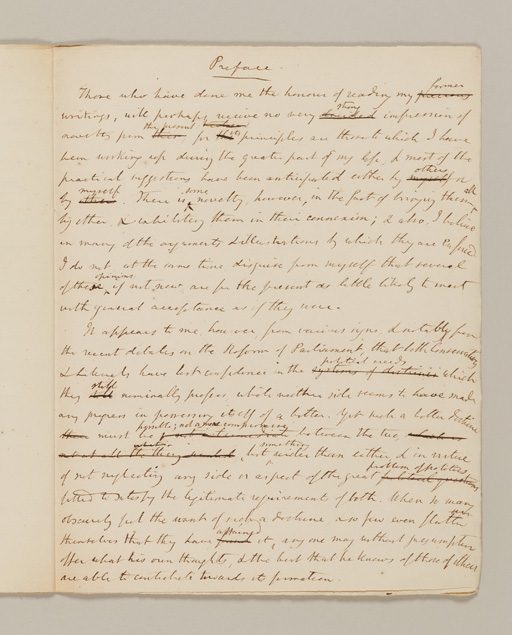 Preface.
Those who have done me the honour of reading my previous former
writings, will perhaps receive no very decided strong impression of
novelty from the present; for the principles are those to which I have
been working up during the greater part of my life, & most of the
practical suggestions have been anticipated either by myself others or
by others myself. There is some novelty, however, in the fact of bringing them all
together, & exhibiting them in their connexion; & also I believe
in many of the arguments & illustrations by which they are enforced
I do not at the same time disguise from myself that several
of these opinions, if not new, are for the present as little likely to meet
with general acceptance as if they were.
It appears to me, however, from various signs, & notably from
the recent debates on the Reform of Parliament, that both Conservatives
& Liberals have lost confidence in the systems of doctrines political creeds which
they still nominally profess, while neither side seems to have made
any progress in possessing itself of a better. Yet such a better doctrine
must be possible; not a mere compromise between the two,
but something wider than either, & in virtue
of not neglecting any side or aspect of the great political questions problem of politics,
fitted to satisfy the legitimate requirements of both. When so many
obscurely feel the want of such a doctrine & so few even flatter
themselves that they have found attained it, any one may without presumption
offer what his own thoughts, & the best that he knows of those of others
are able to contribute towards its formation.